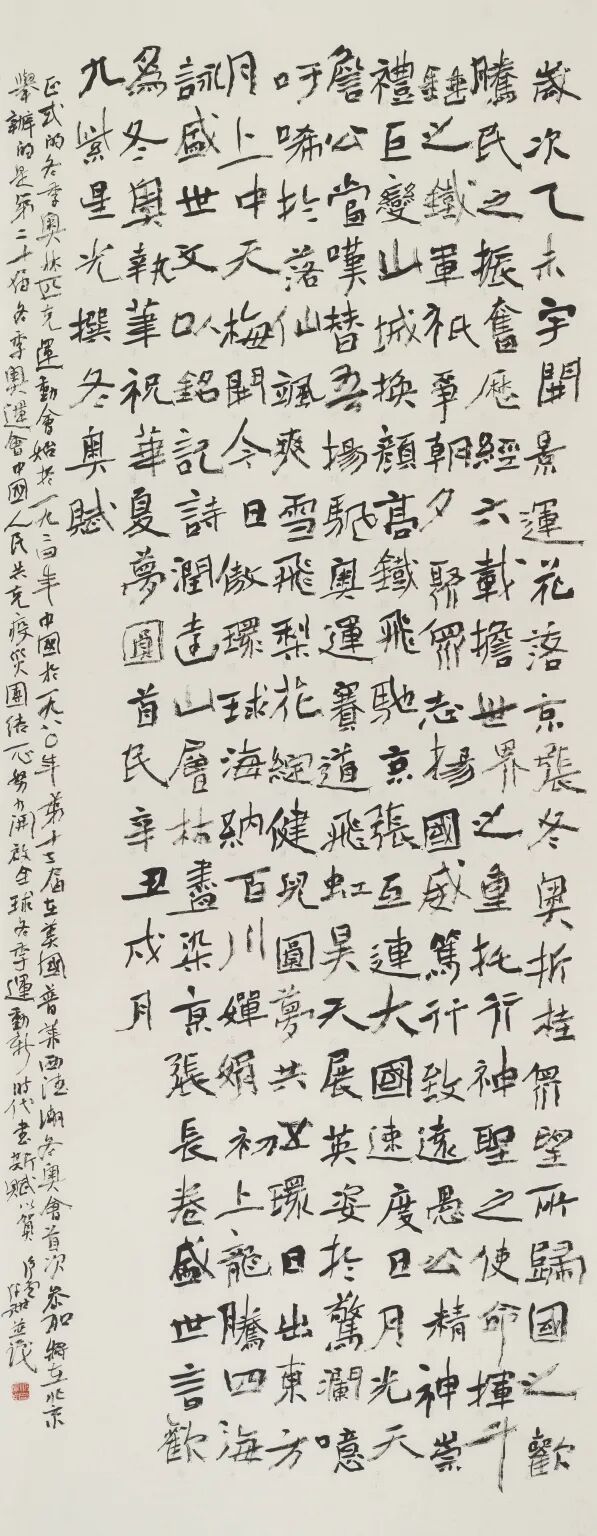 歲次乙未宇開景運花落京張冬奧折桂眾望所歸國之歡
騰民之振奮歷經六載擔世界之重托行神聖之使命揮斗
錘之鐵軍祇爭朝夕聚眾志揚國威篤行致遠愚公精神崇
禮巨變山城換顏高鐵飛馳京張互連大國速度日月光天
詹公當嘆替吾揚馳奧運賽道飛虹昊天展英姿於驚瀾噫
吁唏於落仙颯爽雪飛梨花綻健兒圓夢共五環日出東方
月上中天梅開今日傲環球海納百川嬋娟初上龍騰四海
詠盛世文以銘記詩潤達山層林盡染京張長卷盛世言歡
為冬奧執筆祝華夏夢圓首民辛丑戌月
九紫星光撰冬奧賦
正式的冬季奧林匹克運動會始於一九二四年中國於一九八〇年第十三屆在美國普萊西德湖冬奧會首次參加將在北京
舉辦的是第二十四屆冬季奧運會中國人民共克疫災團結一心努力開啟全球冬季運動新時代書斯賦以賀